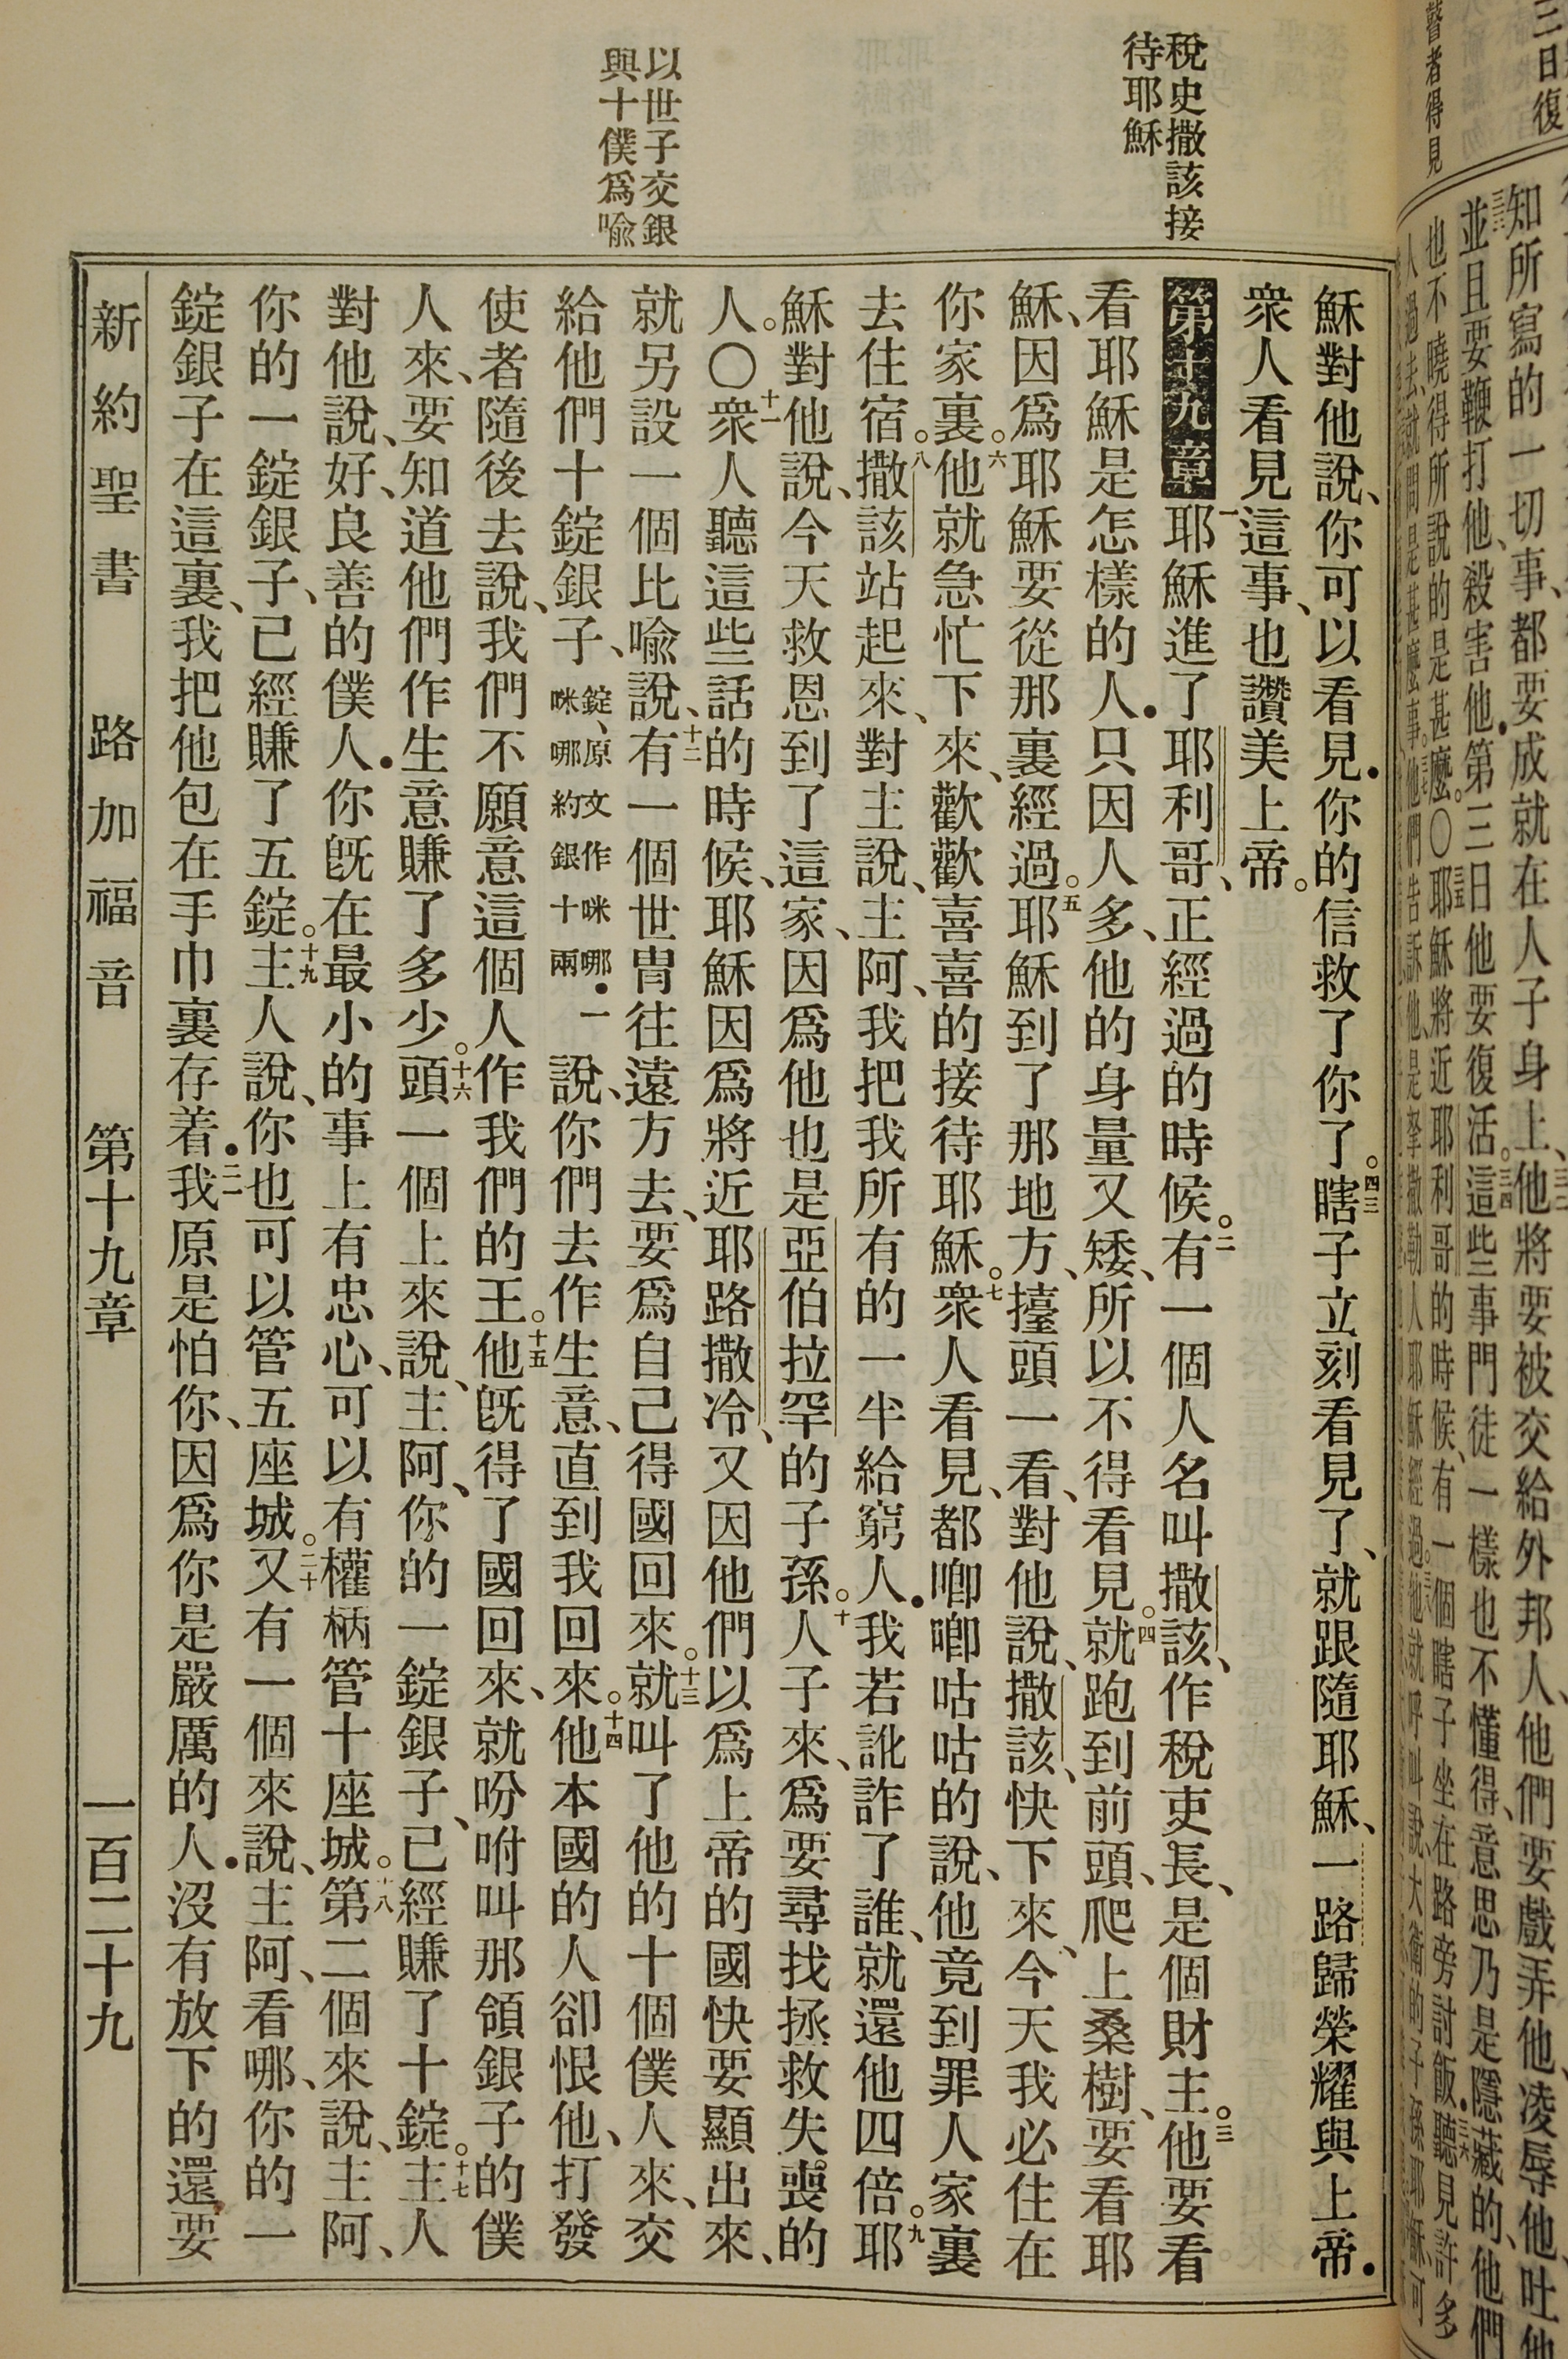 三日復
瞽者得見
知所寫的一切事、都要成就在人子身上、三二他將要被交給外邦人、他們要戲弄他、凌辱他、吐他
三三並且要鞭打他、殺害他．第三日他要復活。三四這些事門徒一樣也不懂得、意思乃是隱藏的、他們
也不曉得所說的是甚麼。〇三五耶穌將近耶利哥的時候、有一個瞎子坐在路旁討飯．三六聽見許多
人過去、就問是甚麼事。三七他們告訴他、是拏撒勒人耶穌經過。三八他就呼叫說、大衛的子孫耶穌、可
稅吏撒該接
待耶穌
以世子交銀
與十僕爲喻
穌對他說、你可以看見．你的信救了你了。四三瞎子立刻看見了、就跟隨耶穌、一路歸榮耀與上帝．
衆人看見這事、也讚美上帝。
第十九章一耶穌進了耶利哥、正經過的時候。二有一個人名叫撒該、作稅吏長、是個財主。三他要看
看耶穌是怎樣的人．只因人多、他的身量又矮、所以不得看見。四就跑到前頭、爬上桑樹、要看耶
穌、因爲耶穌要從那裏經過。五耶穌到了那地方、擡頭一看、對他說、撒該、快下來、今天我必住在
你家裏。六他就急忙下來、歡歡喜喜的接待耶穌。七衆人看見、都唧唧咕咕的說、他竟到罪人家裏
去住宿。八撒該站起來、對主說、主阿、我把我所有的一半給窮人．我若訛詐了誰、就還他四倍。九耶
穌對他說、今天救恩到了這家、因爲他也是亞伯拉罕的子孫。十人子來、爲要尋找拯救失喪的
人。〇十一衆人聽這些話的時候、耶穌因爲將近耶路撒冷、又因他們以爲上帝的國快要顯出來、
就另設一個比喻說、十二有一個世冑往遠方去、要爲自己得國回來。十三就叫了他的十個僕人來、交
給他們十錠銀子、錠、原文作咪哪．一咪哪約銀十兩說、你們去作生意、直到我回來。十四他本國的人卻恨他、打發
使者隨後去說、我們不願意這個人作我們的王。十五他旣得了國回來、就吩咐叫那領銀子的僕
人來、要知道他們作生意賺了多少。十六頭一個上來說、主阿、你的一錠銀子、已經賺了十錠。十七主人
對他說、好、良善的僕人．你旣在最小的事上有忠心、可以有權柄管十座城。十八第二個來說、主阿、
你的一錠銀子、已經賺了五錠。十九主人說、你也可以管五座城。二十又有一個來說、主阿、看哪、你的一
錠銀子在這裏、我把他包在手巾裏存着．二一我原是怕你、因爲你是嚴厲的人．沒有放下的還要
新約聖書　路加福音　第十九章　一百二十九